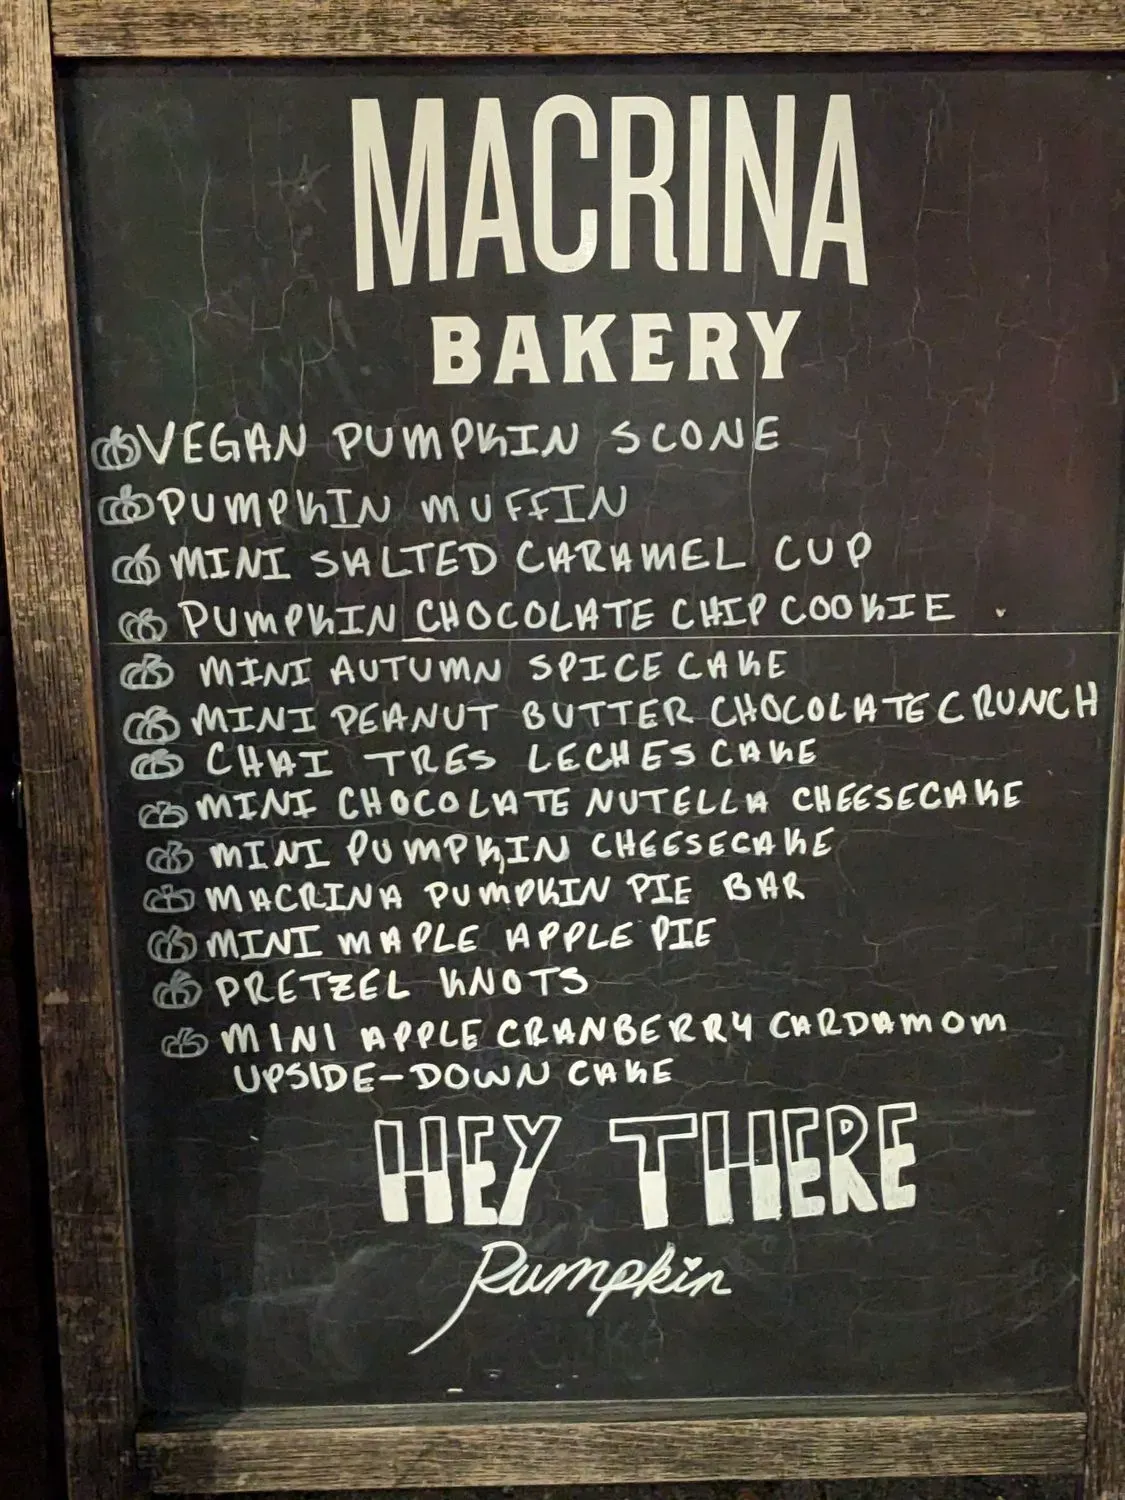 MACRINA
BAKERY
VEGAN PUMPKIN SCONE
PUMPKIN MUFFIN
MINI SALTED CARAMEL CUP
PUMPKIN CHOCOLATE CHIP COOKIE
MINI AUTUMN SPICE CAKE
MINI PEANUT BUTTER CHOCOLATE CRUNCH
CHAI TRES LECHES CAKE
MINI CHOCOLATE NUTELLA CHEESECAKE
MINI PUMPKIN CHEESECAKE
MACRINA PUMPKIN PIE BAR
MINI MAPLE APPLE PIE
PRETZEL KNOTS
MINI APPLE CRANBERRY CARDAMOM
UPSIDE-DOWN CAKE
HEY THERE
Pumpkin